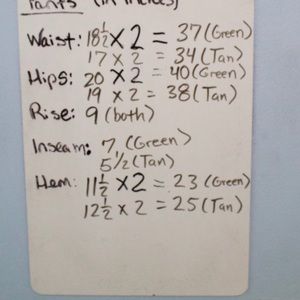 Pants (in inches)
Waist: 18 1/2 x 2 = 37 (Green)
17 x 2 = 34 (Tan)
Hips: 20 x 2 = 40 (Green)
19 x 2 = 38 (Tan)
Rise: 9 (both)
Inseam: 7 (Green)
5 1/2 (Tan)
Hem: 11 1/2 x 2 = 23 (Green)
12 1/2 x 2 = 25 (Tan)